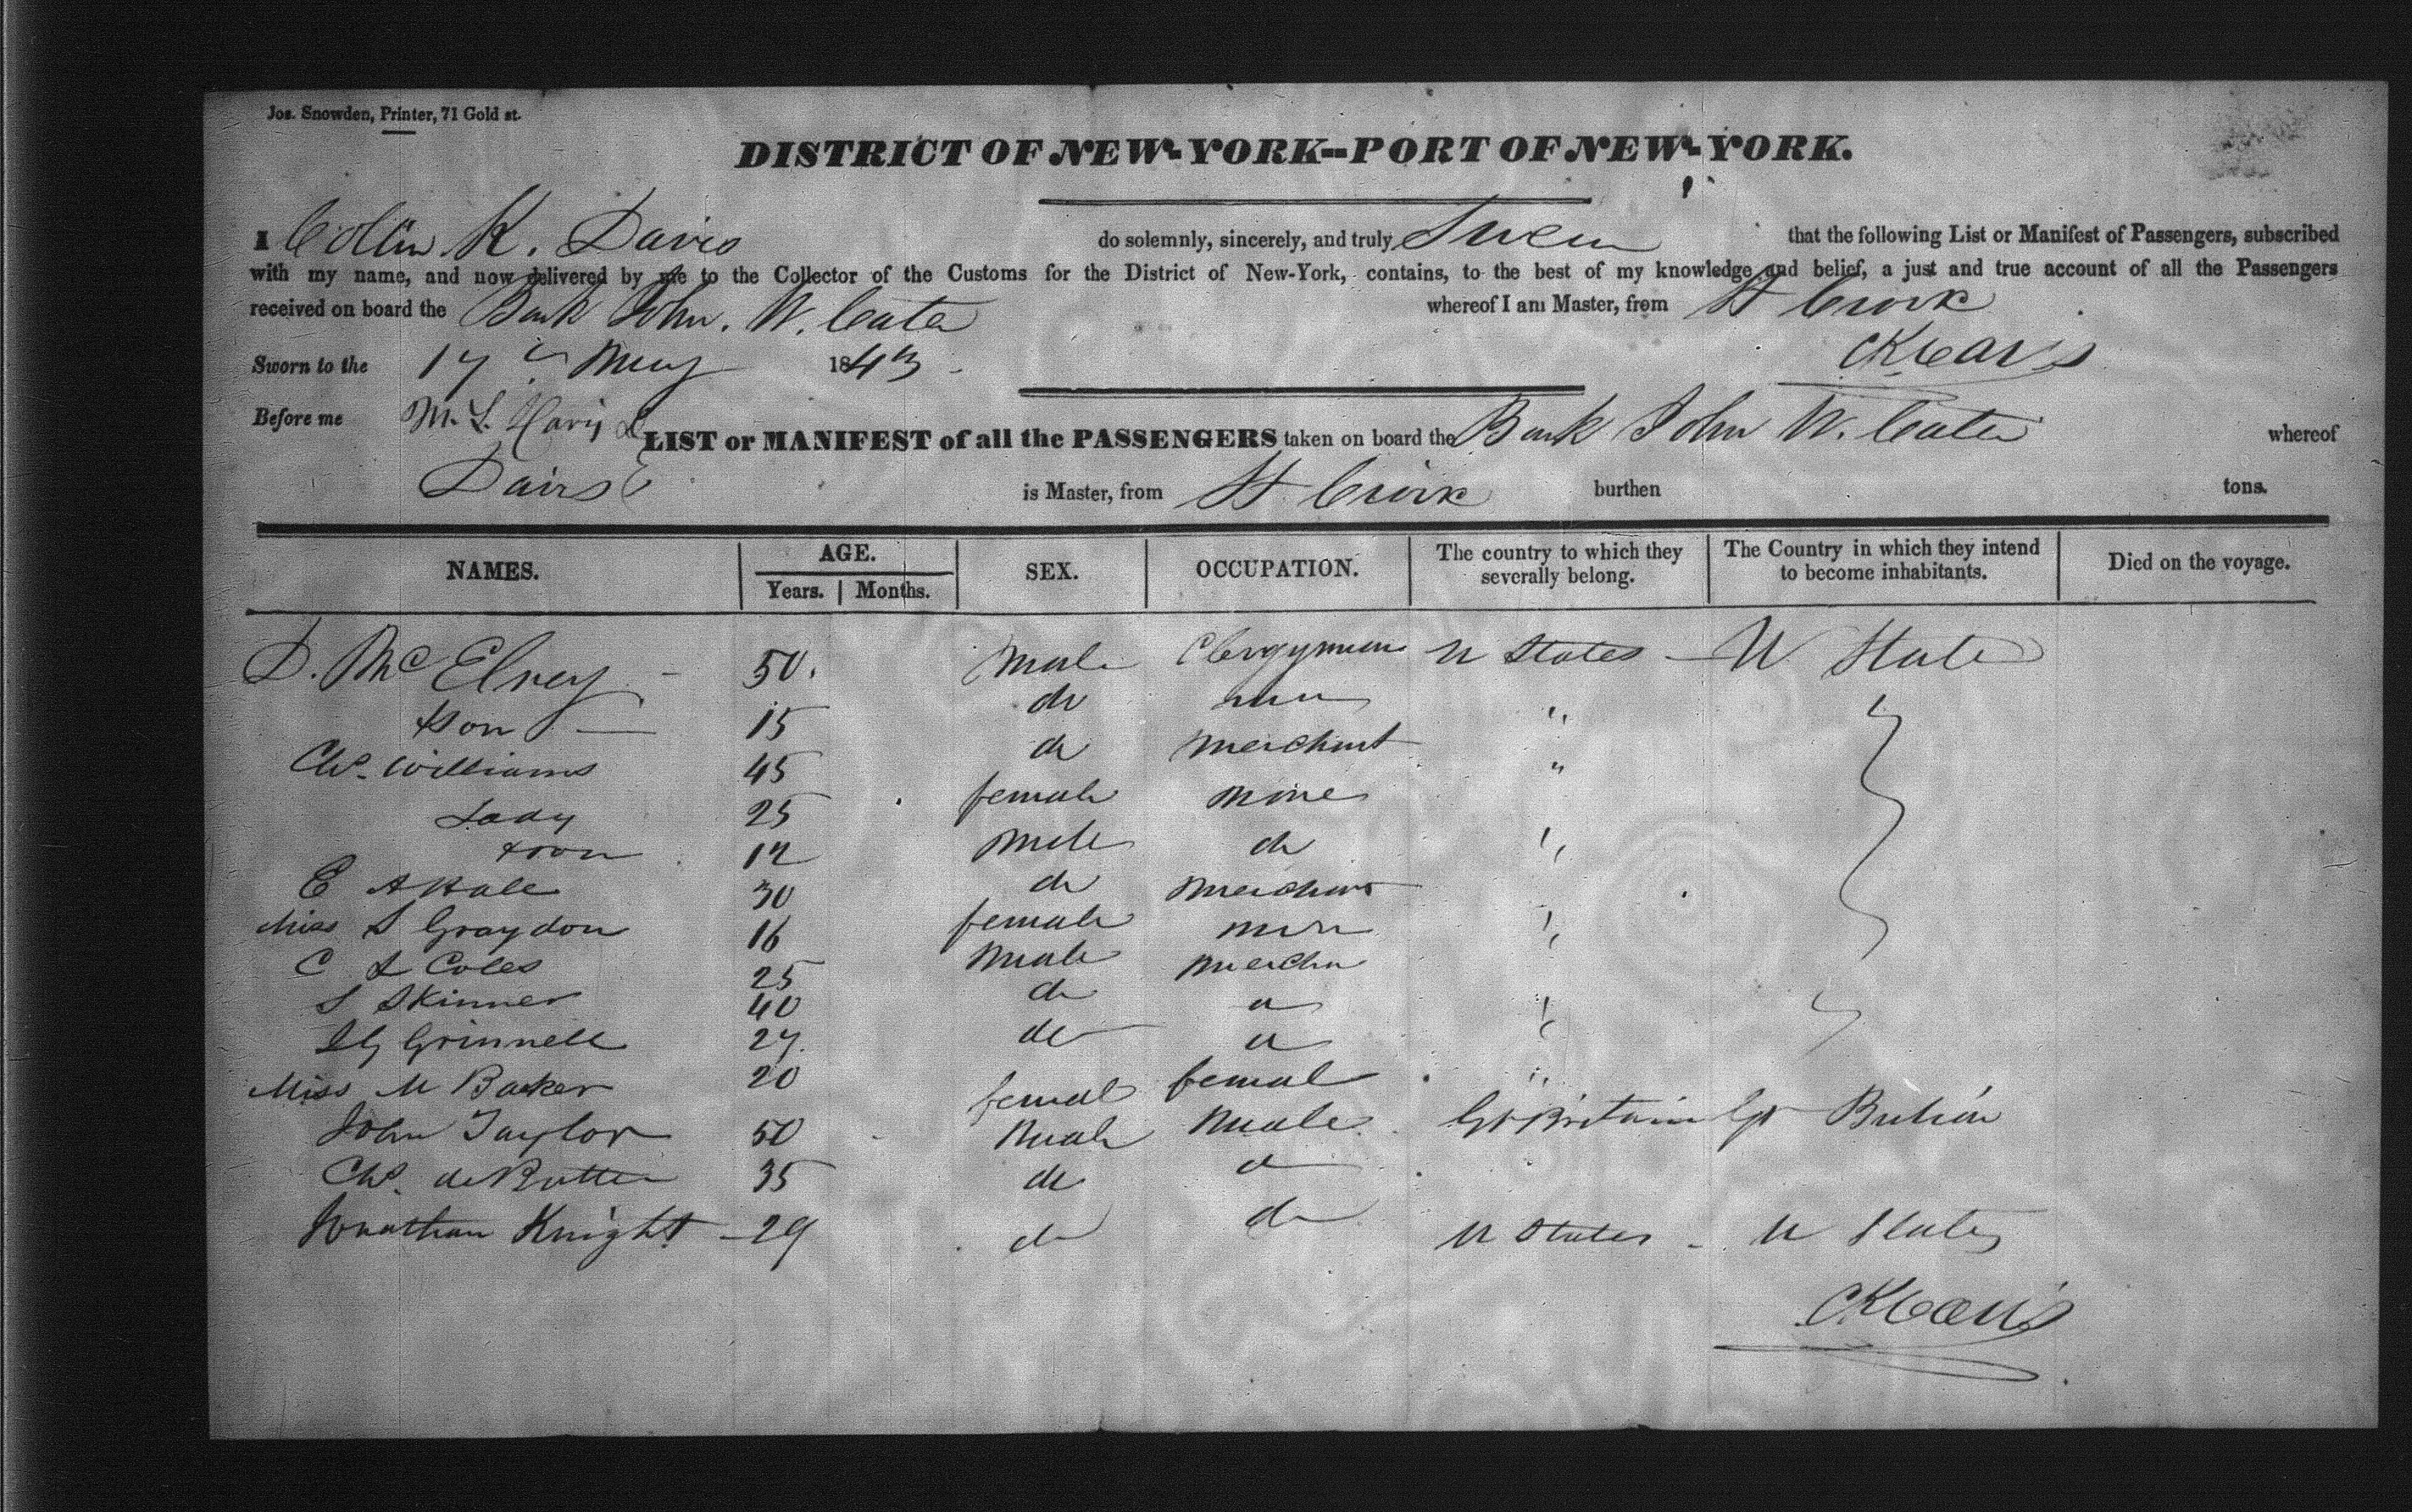 Jos. Snowden, Printer, 71 Gold st.
DISTRICT OF NEW-YORK--PORT OF NEW-YORK.
I Collin K. Davis do solemnly, sincerely, and truly Swear that the following List or Manifest of Passengers, subscribed
with my name, and now delivered by me to the Collector of the Customs for the District of New-York, contains, to the best of my knowledge and belief, a just and true account of all the Passengers
received on board the Bark John. W. Cater whereof I am Master, from St Croix
Sworn to the 17 May 1843
Before me M. L. Davis
LIST or MANIFEST of all the PASSENGERS taken on board the Bark John W. Cater whereof
Davis is Master, from St Croix burthen tons.
NAMES. AGE. Years. Months. SEX. OCCUPATION. The country to which they severally belong. The Country in which they intend to become inhabitants. Died on the voyage.
D. Mc Elney 50. Male Clergyman U States - U State
+ Son 15 do "
Chs. Williams 45 do Merchant "
Lady 25 female None
+ son 12 Male do "
E A Hale 30 do Merchant
Miss S Graydon 16 female "
C L Coles 25 Male Mercha
S Skinner 40 do "
Grinnell 27. do
Miss M Barker 20 femal femal "
John Taylor 50 Male Male Gt Britain Gt Britain
Chs. 35 do
Jonathan Knight - 29 do do U States - U States